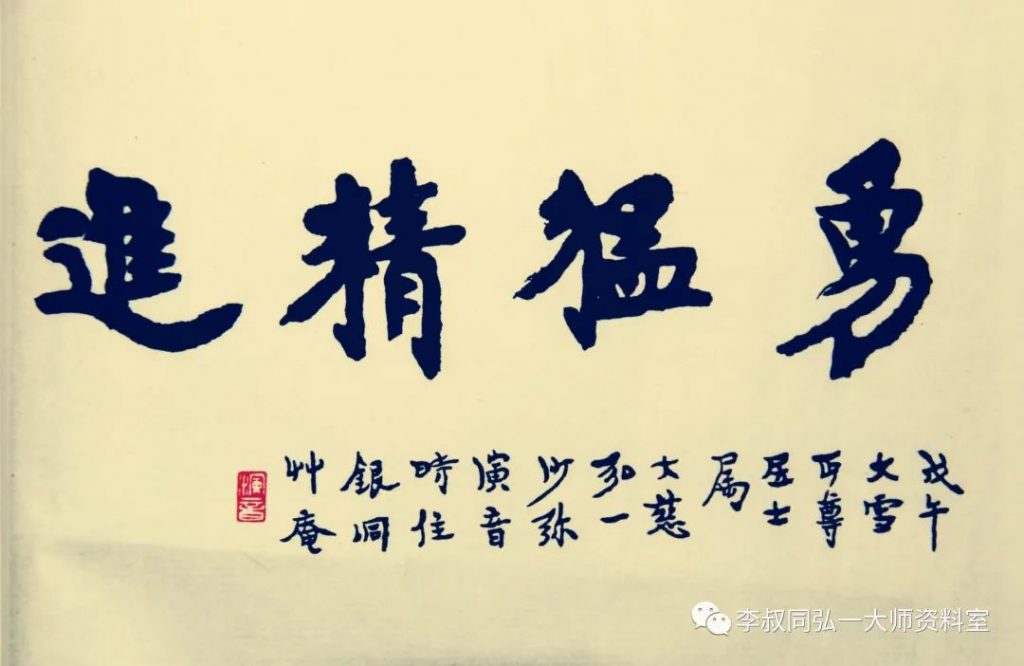 勇猛精進
戊午
大雪
丏尊
居士
属
大慈
弘一
沙弥
演音
時住
銀洞
艸庵
演音
李叔同弘一大师资料室